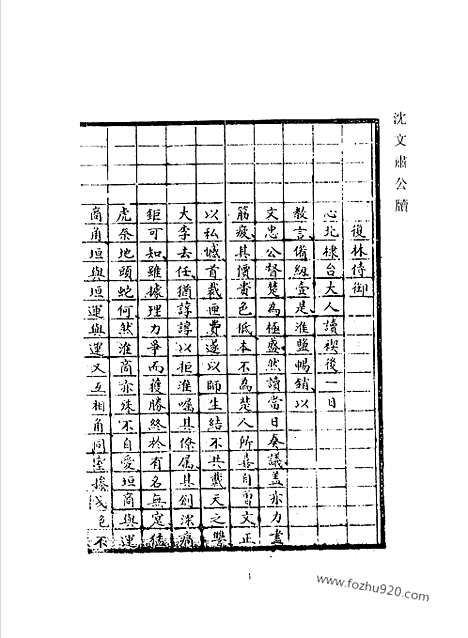 沈文肅公牘
復林侍御
心北棣台大人讀禊後一日
教言備紉壹是淮鹽暢銷以
文忠公督楚為極盛然讀當日奏議蓋亦力盡
筋疲其價貴色低本不為楚人所喜自曾文正
以私憾首裁匣費遂以師生結不共戴天之讐
大李去任猶諄諄以拒淮囑其僚屬其創深痛
鉅可知雖據理力爭而獲勝終於有名無實續
虎祭地頭蛇何然淮商亦殊不自愛垣商與運
商角垣與垣運與運又互相角同室操戈色不
1
www.fozhu920.com